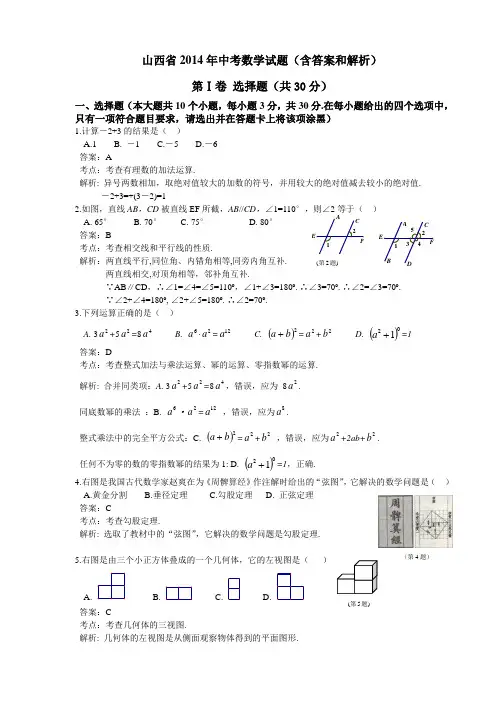 山西省2014年中考数学试题（含答案和解析）
第Ⅰ卷 选择题（共30分）
一、选择题（本大题共10个小题，每小题3分，共30分.在每小题给出的四个选项中，
只有一项符合题目要求，请选出并在答题卡上将该项涂黑）
1.计算－2+3的结果是（ ）
A.1 B. －1 C.－5 D.－6
答案：A
考点：考查有理数的加法运算.
解析: 异号两数相加，取绝对值较大的加数的符号，并用较大的绝对值减去较小的绝对值.
－2+3=+(3－2)=1
2.如图，直线AB，CD被直线EF所截，AB//CD，∠1=110°，则∠2等于（ ）
A. 65° B. 70° C. 75° D. 80°
答案：B
考点：考查相交线和平行线的性质.
解析：两直线平行,同位角、内错角相等,同旁内角互补.
两直线相交,对顶角相等，邻补角互补.
∵AB∥CD，∴∠1=∠4=∠5=110°，∠1+∠3=180°. ∴∠3=70°. ∴∠2=∠3=70°.
∵∠2+∠4=180°, ∠2+∠5=180°. ∴∠2=70°.
A C E 1 2 F
(第2题)
A C 5 2 E 1 3 4 F B D
3.下列运算正确的是（ ）
A. 3a²+5a²=8a⁴ B. a⁶·a²=a¹² C. (a+b)²=a²+b² D. (a²+1)⁰=1
答案：D
考点：考查整式加法与乘法运算、幂的运算、零指数幂的运算.
解析: 合并同类项：A. 3a²+5a²=8a⁴，错误，应为 8a².
同底数幂的乘法 ：B. a⁶·a²=a¹² ，错误，应为a⁸.
整式乘法中的完全平方公式：C. (a+b)²=a²+b² ，错误，应为a²+2ab+b².
任何不为零的数的零指数幂的结果为1: D. (a²+1)⁰=1，正确.
4.右图是我国古代数学家赵爽在为《周髀算经》作注解时给出的“弦图”，它解决的数学问题是（ ）
A.黄金分割 B.垂径定理 C.勾股定理 D. 正弦定理
答案：C
考点：考查勾股定理.
解析: 选取了教材中的“弦图”，它解决的数学问题是勾股定理.
周髀算經
(第4题)
5.右图是由三个小正方体叠成的一个几何体，它的左视图是（ ）
A. B. C. D.
(第5题)
答案：C
考点：考查几何体的三视图.
解析: 几何体的左视图是从侧面观察物体得到的平面图形.